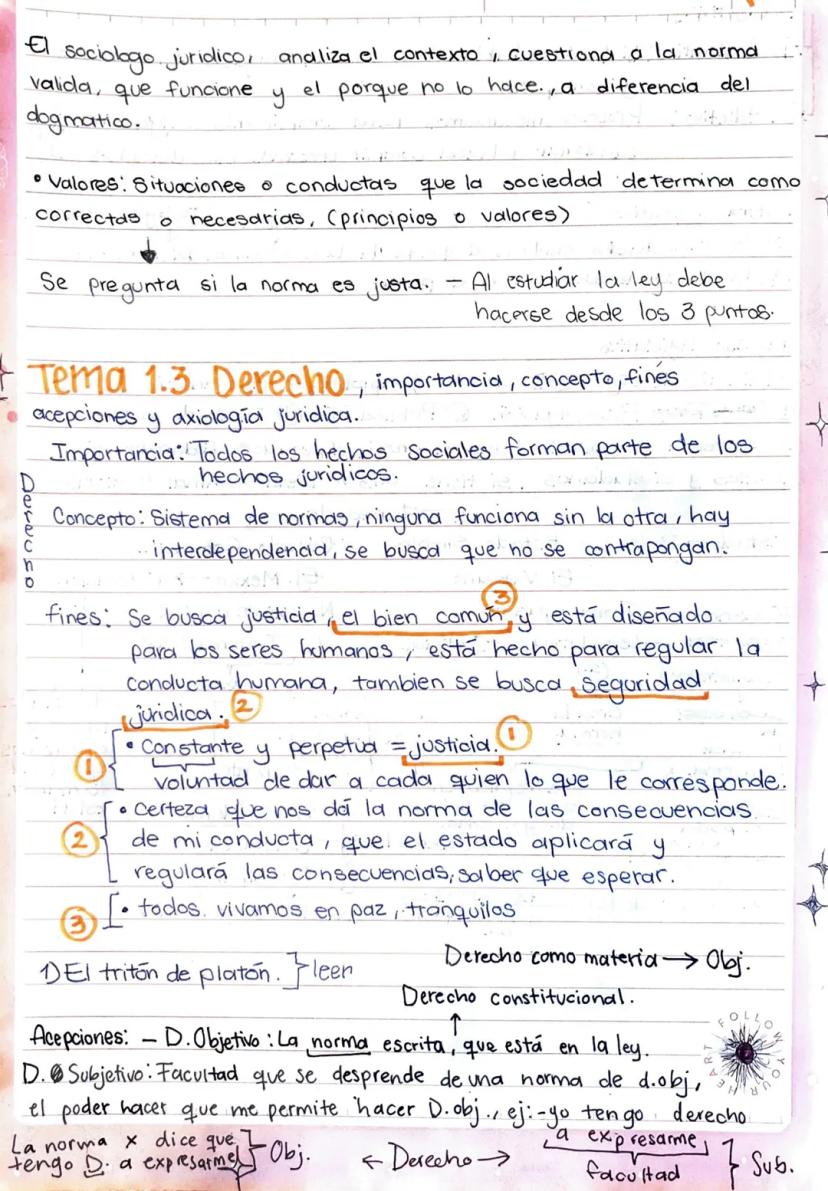 El sociologo juridico, analiza el contexto, cuestiona a la norma
valida, que funcione y el porque no lo hace., a diferencia del
dogmatico.
• Valores: Situaciones o conductas que la sociedad determina como
correctas o necesarias, (principios o valores)
Se pregunta si la norma es justa. – Al estudiar la ley debe
hacerse desde los 3 puntos.
Tema 1.3. Derecho, importancia, concepto, fines
acepciones y axiología juridica.
Importancia: Todos los hechos sociales forman parte de los
hechos juridicos.
Derecho
Concepto: Sistema de normas, ninguna funciona sin la otra, hay
interdependencia, se busca que no se contrapongan.
3
fines: Se busca justicia, el bien común, y está diseñado
para los seres humanos, está hecho para regular la
conducta humana, tambien se busca seguridad
juridica. 2
1 • Constante y perpetua = justicia. 1
voluntad de dar a cada quien lo que le corresponde.
2 • Certeza que nos dá la norma de las consecuencias
de mi conducta, que el estado aplicará y
regulará las consecuencias, saber que esperar.
3 • todos vivamos en paz, tranquilos
1) El tritón de platón. } leer
Derecho como materia → Obj.
Derecho constitucional.
Acepciones: – D. Objetivo: La norma escrita, que está en la ley.
FOLLOW YOUR HEART
D. Subjetivo: Facultad que se desprende de una norma de d.obj,
el poder hacer que me permite hacer D.obj., ej: -yo tengo derecho
a expresarme
La norma x dice que
tengo D. a expresarme } Obj. ← Derecho → facultad } Sub.